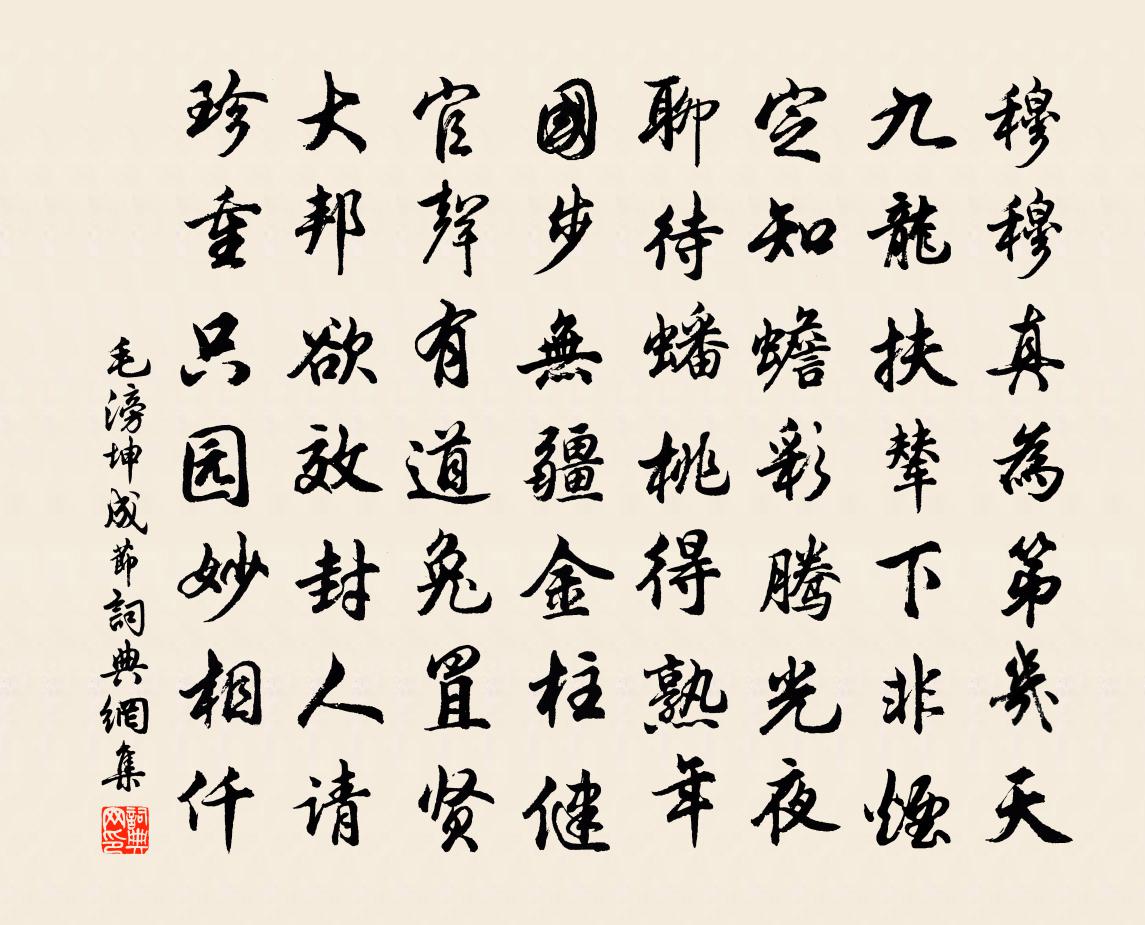 穆穆真為第幾天
九龍扶輦下非煙
定知蟾彩騰光夜
聊待蟠桃得熟年
國步無疆金柱健
官聲有道兔罝賢
大邦欲效封人请
珍重只园妙相仟
毛滂坤成節詞典網集
詞典
网印